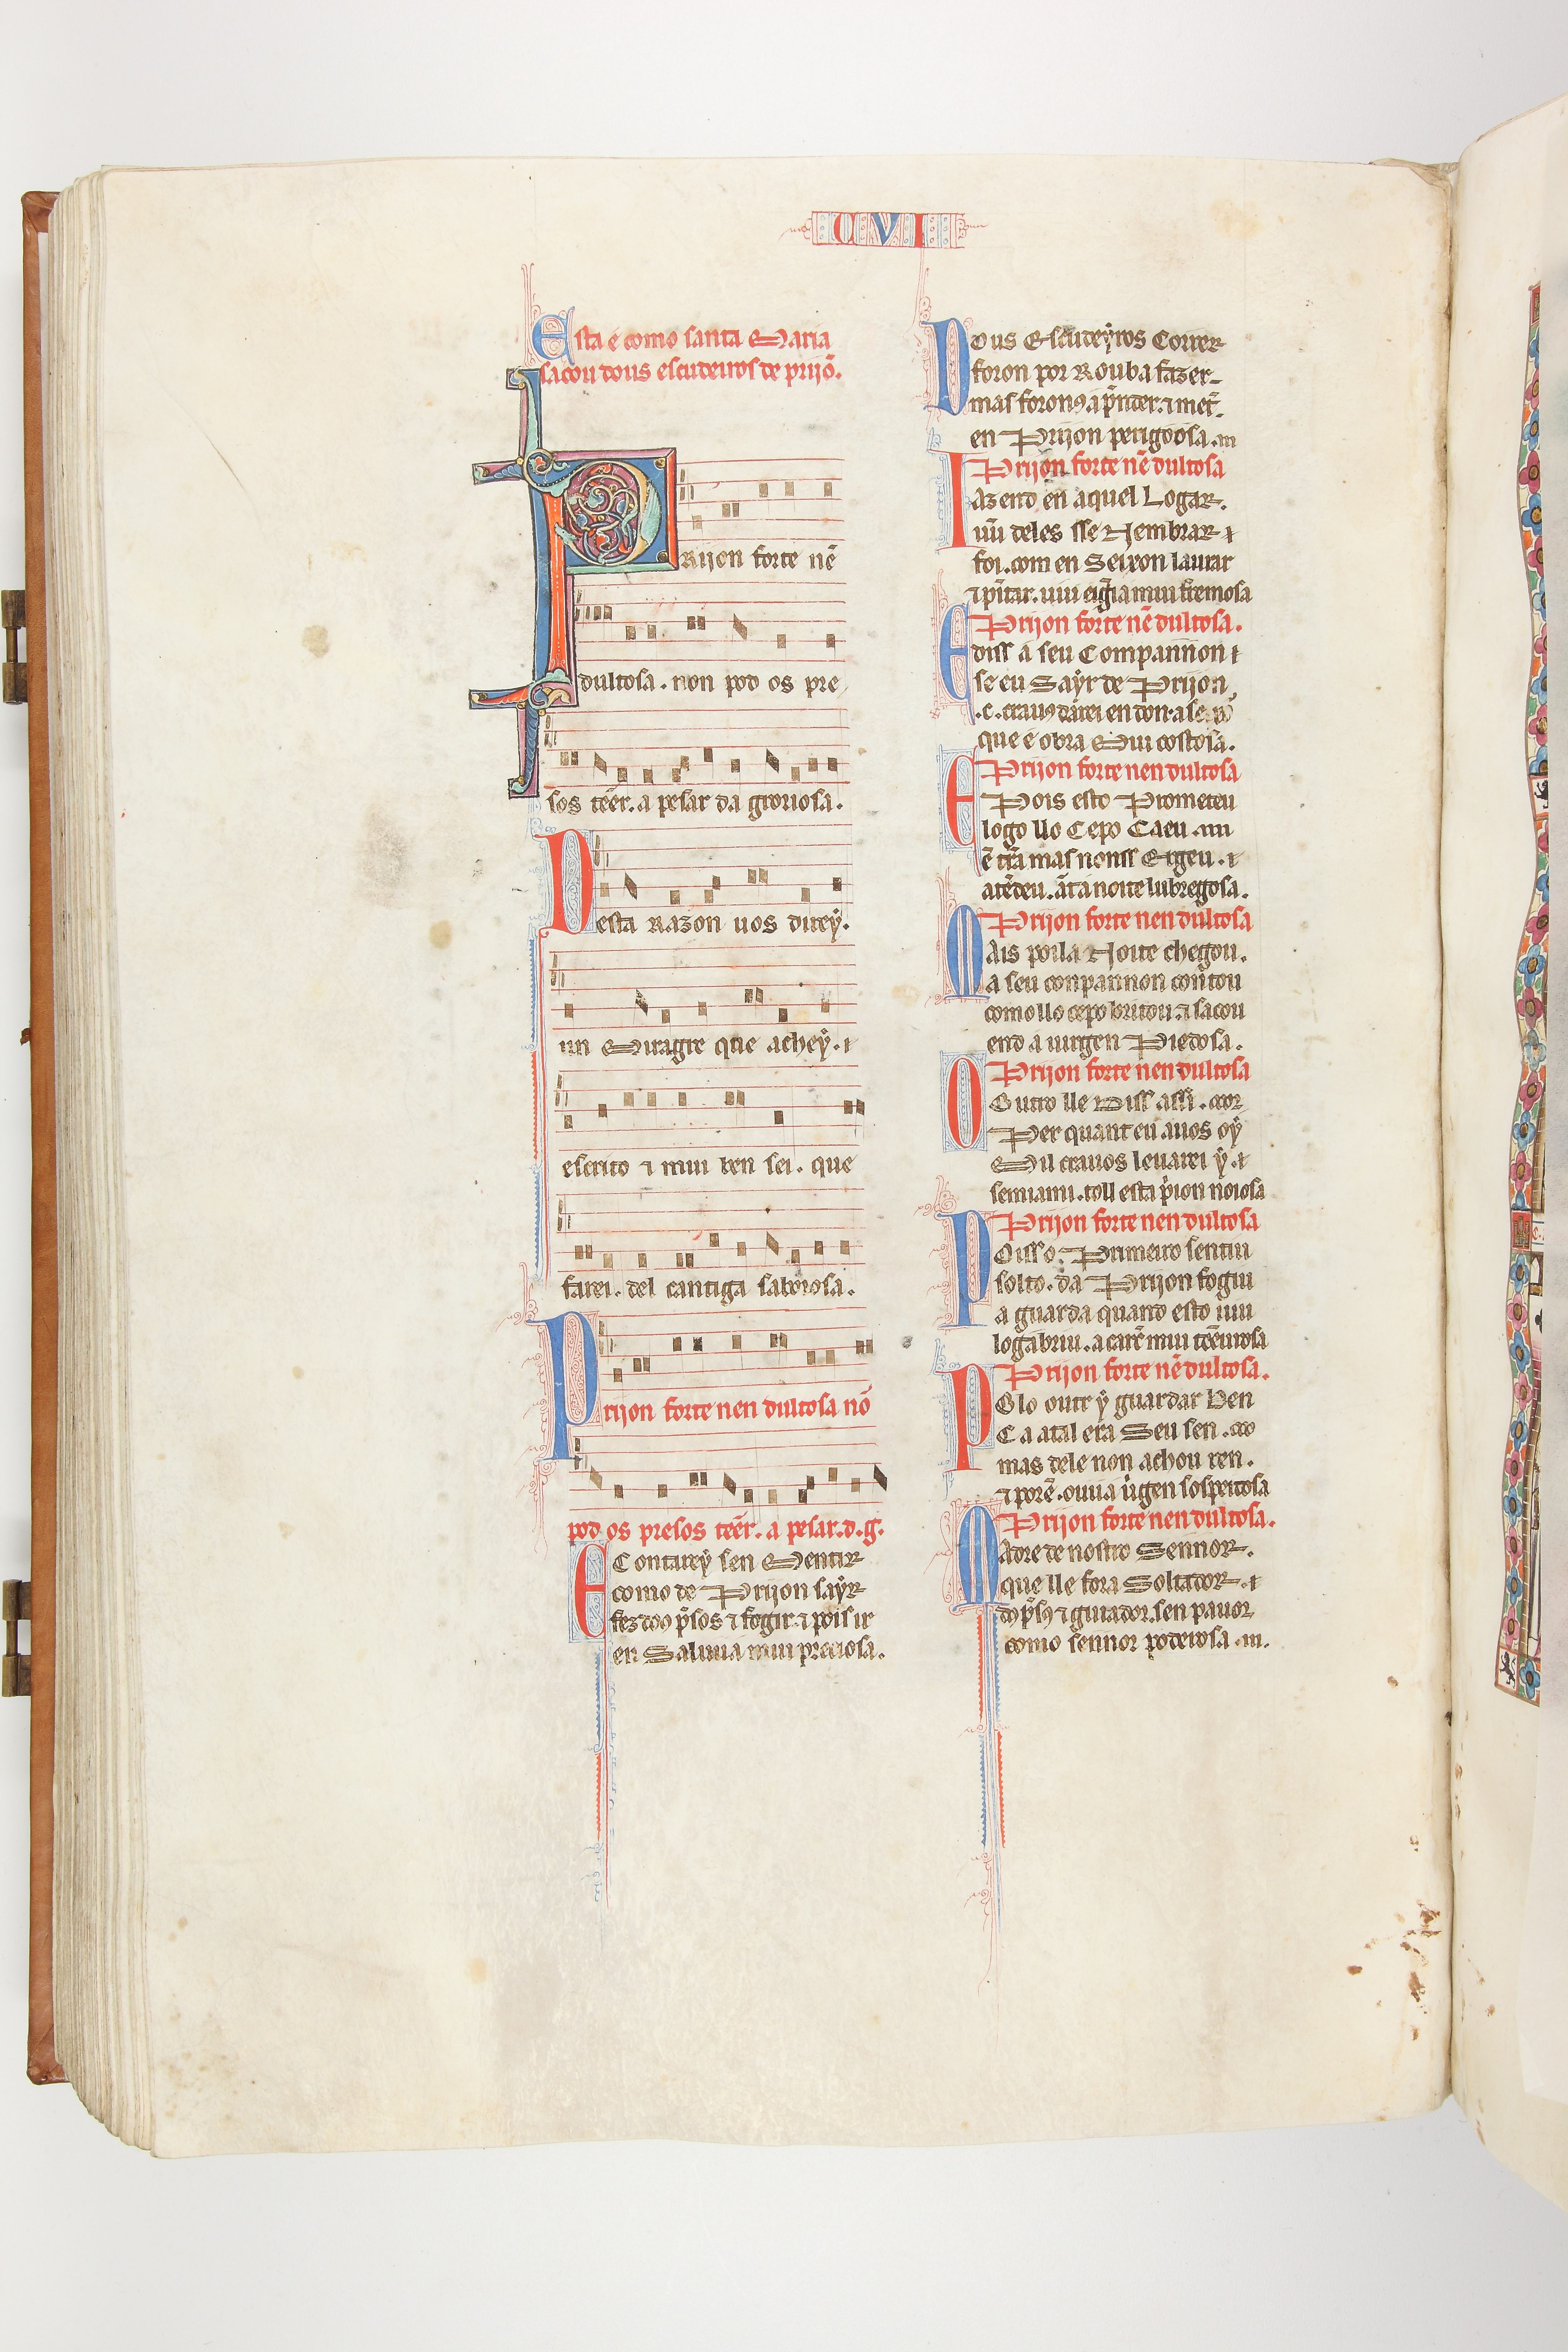 CVI
Esta é como santa Maria
sacou dous escudeiros de prijō.
PRijon forte nē
dultosa. non pod os pre
sos tēer. a pesar da grorios̃a.
Desta Razon uos direy̾.
un Miragre que achey̾. ⁊
escrito ⁊ mui ben sei. que
farei. del cantiga saborosa.
Prijon forte nen dultosa nō
pod os presos tēer. a pesar.d.g.
E Contarey̾ sen Mentir
como de Prijon say̾r
fez doꝯ p̃sos ⁊ fogir. ⁊ pois ir
en Saluua mui preciosa.
Dous Escudey̾ros Correr
foron por Rouba fazer
mas foronꝯ a p̃nder. ⁊ met̃.
en Prijon perigoosa.
Prijon forte nē dultosa
Iazendo en aquel Logar.
uũ deles sse Nembrar ⁊
foi. com en Seixon laurar
⁊ p̃itar. uiu eig̃ia mui fremosa
Prijon forte nē dultosa.
E diss a seu Compannon ⁊
se eu Say̾r de Prijon
.c. crauꝯ darei en don. a
que é obra Mui costosa.
Prijon forte nen dultosa
E Pois esto Prometeu
logo llo Cepo Caeu
ē tr̃a mas nonss Ergeu. ⁊
atēdeu. ãta noite lubregosa.
Prijon forte nen dultosa
Mais poila Noite chegou.
a seu conpannon contou
como llo cepo britou. ⁊ sacou
end a uirgen Piedosa.
Prijon forte nen dultosa
O Outro lle Diss assi.
Per quant eu auos oy̾
Mil crauos leuarei y̾. ⁊
semiami. toll esta p̃ion noiosa
Prijon forte nen dultosa
Pois so. Primeiro sentiu
solto. da Prijon fogiu
a guarda quando esto uiu
log abriu. a carc̃ mui tēeurosa
Prijon forte nē dultosa.
Polo outr y̾ guardar Ben
Ca atal era Seu sen.
mas dele non achou ren.
⁊ porē. ouua uirgen sospeitosa
Prijon forte nen dultosa.
Madre de nostro Sennor.
que lle fora Soltador. ⁊
dꝯ p̃sꝯ ⁊ guiador. sen pauor
como sennor poderosa.